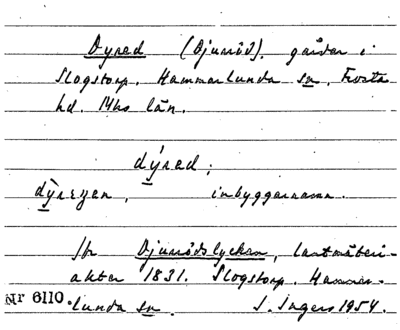 Dyred (Djuröd), gårdar i
Slogstorp, Hammarlunda sn, Frosta
hd. Mhs län.
dýred;
dỳrezen, inbyggarnamn.
Jfr Djurödslyckan, lantmäteri-
akter 1831. Slogstorp. Hammar-
Nr 6110. lunda sn. I. Ingers 1954.